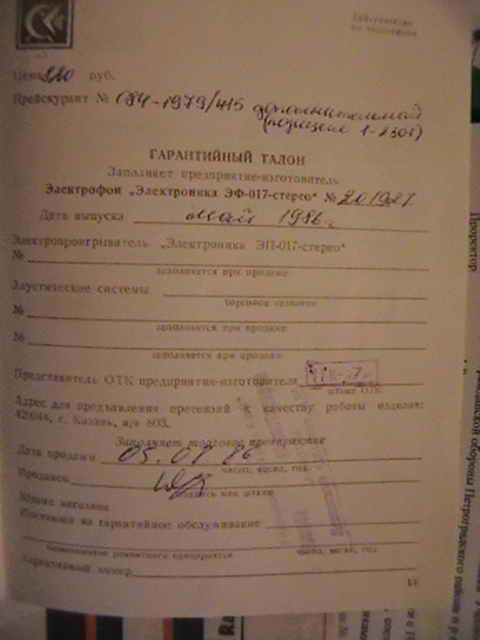 Действителен
по заполнении
Цена 220 руб.
Прейскурант № 084-1979/415 дополнительный
(позиция 1-2301)
ГАРАНТИЙНЫЙ ТАЛОН
Заполняет предприятие-изготовитель
Электрофон „Электроника ЭФ-017-стерео“ №
Дата выпуска май 1986 г.
Электропроигрыватель „Электроника ЭП-017-стерео“
№
заполняется при продаже
Акустические системы
торговое название
№
заполняется при продаже
№
заполняется при продаже
Представитель ОТК предприятия-изготовителя
штамп ОТК
Адрес для предъявления претензий к качеству работы изделия:
г. Казань, а/я 603.
Заполняет торговое предприятие
Дата продажи 05.07.86
число, месяц, год
Продавец
подпись или штамп
Штамп магазина
Поставлен на гарантийное обслуживание
наименование ремонтного предприятия число, месяц, год
Гарантийный номер
Проректор
обороны Петроградского района